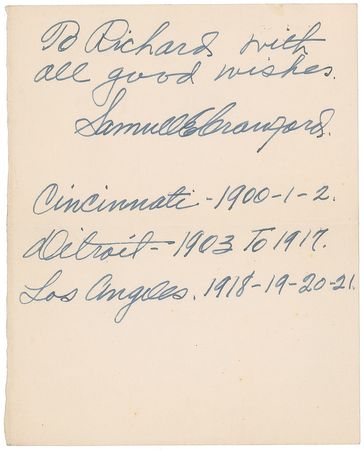 To Richard with
all good wishes.
Samuel E Crawford.
Cincinnati - 1900-1-2.
Detroit - 1903 To 1917.
Los Angeles. 1918-19-20-21.